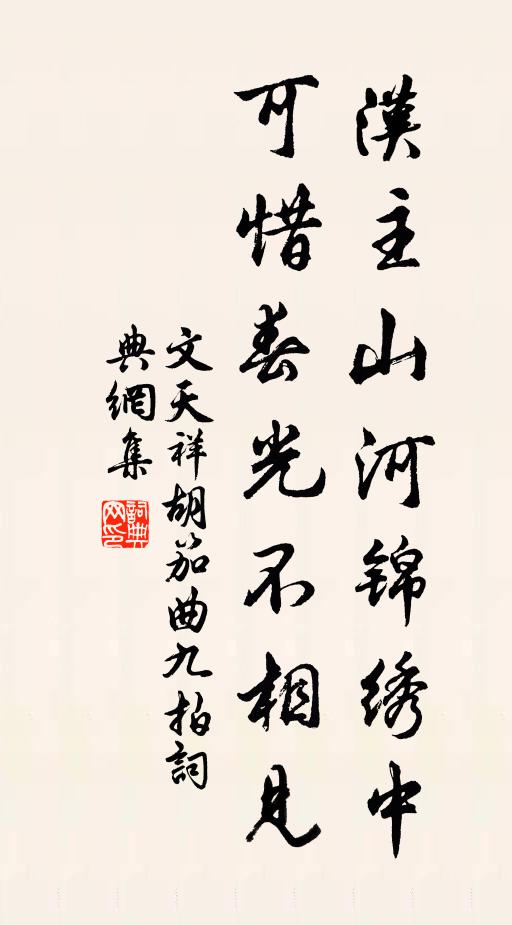 漢主山河锦绣中
可惜春光不相見
文天祥胡笳曲九拍詞
典網集
詞典
网印